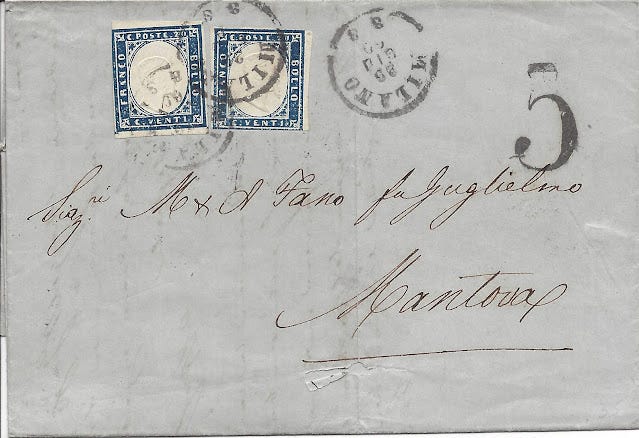 C. POSTE. 20
FRANCO
BOLLO
C. VENTI.
C. POSTE. 20
FRANCO
BOLLO
C. VENTI.
MILANO
5
Sig.ri M & A Fano fu Guglielmo
Mantova